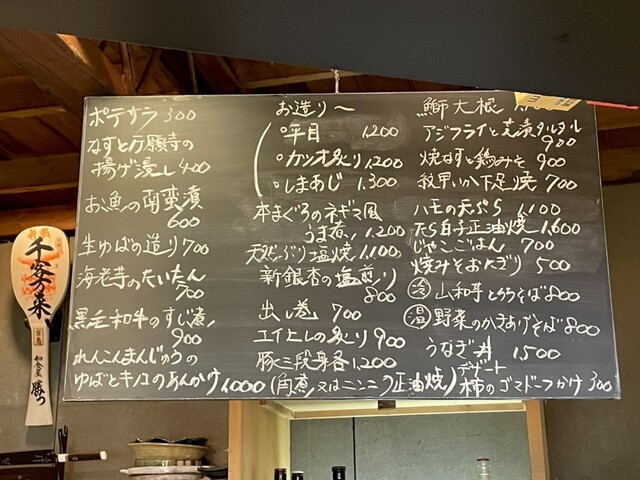 ポテサラ 300
なすと万願寺の
揚げ浸し 400
お魚の南蛮漬
600
生ゆばの造り 700
海老芋のたいたん
700
黒毛和牛のすじ煮
900
れんこんまんじゅうの
ゆばとキノコのあんかけ 1,000
お造り〜
平目 1,200
カツオ炙り 1,200
しまあじ 1,300
本まぐろのネギマ風
うま煮 1,200
天然ぶり塩焼 1,100
新銀杏の塩煎り
800
出し巻 700
エイヒレの炙り 900
豚三段身各 1,200
(角煮 又は ニンニク正油焼)
鰤大根
アジフライと タルタル
900
焼なすと鶏みそ 900
紋甲いか下足焼 700
ハモの天ぷら 1,100
たら白子正油焼 1,600
じゃこごはん 700
焼みそおにぎり 500
冷 山和芋とろろそば 800
温 野菜のかきあげそば 800
うなぎ丼 1,500
デザート
柿のゴマドーフかけ 300
千客万来
勝つ